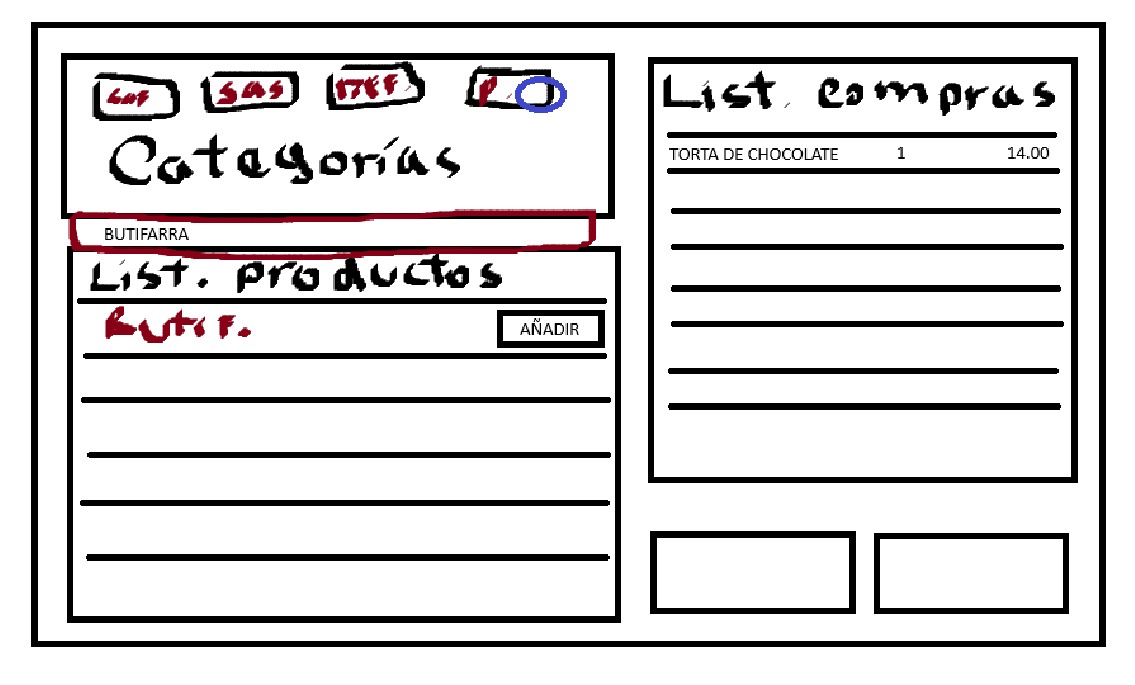 SAS
P.
Categorías
BUTIFARRA
List. productos
Butif.
AÑADIR
List. compras
TORTA DE CHOCOLATE 1 14.00